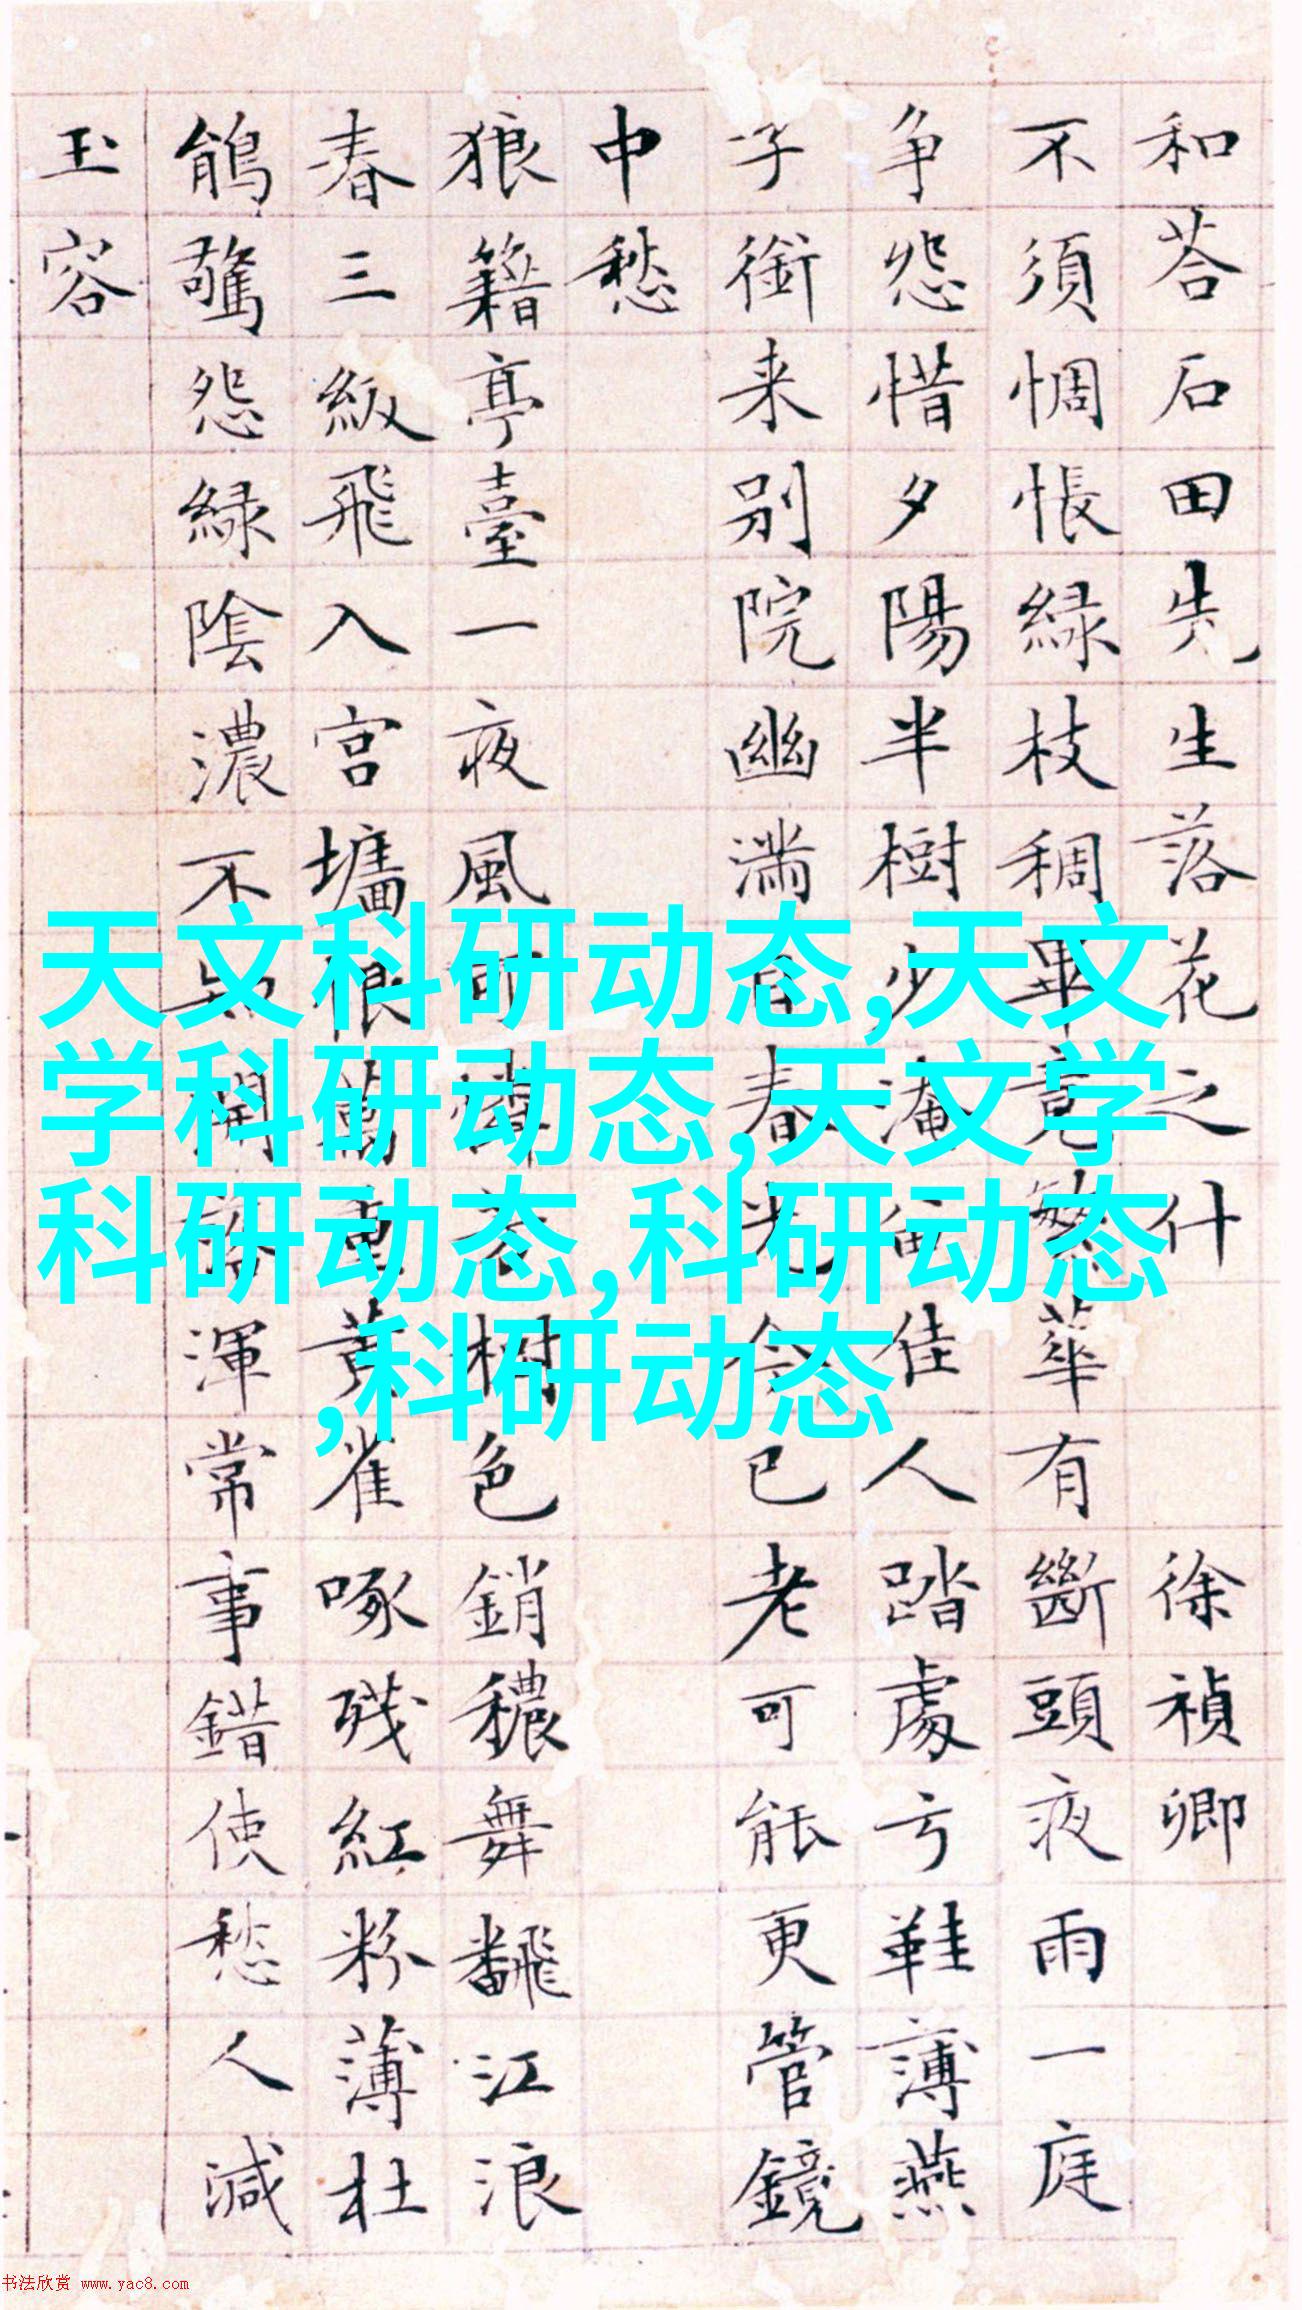 和荅石田先生落花之什 徐禎卿
不須惆悵緑枝稠畢竟繁華有斷頭夜雨一庭
争怨惜夕陽半樹少淹留佳人踏處弓鞋薄燕
子銜来别院幽滿目春光已老可能更管鏡
中愁
狼籍亭臺一夜風可憐樹色銷穠舞飜江浪
春三級飛入宮墻恨萬重黄雀啄残紅粉薄杜
鵑驚怨緑陰濃不知開落渾常事錯使愁人減
玉容
天文科研动态,天文
学科研动态,天文学
科研动态,科研动态
,科研动态
书法欣赏 www.yac8.com